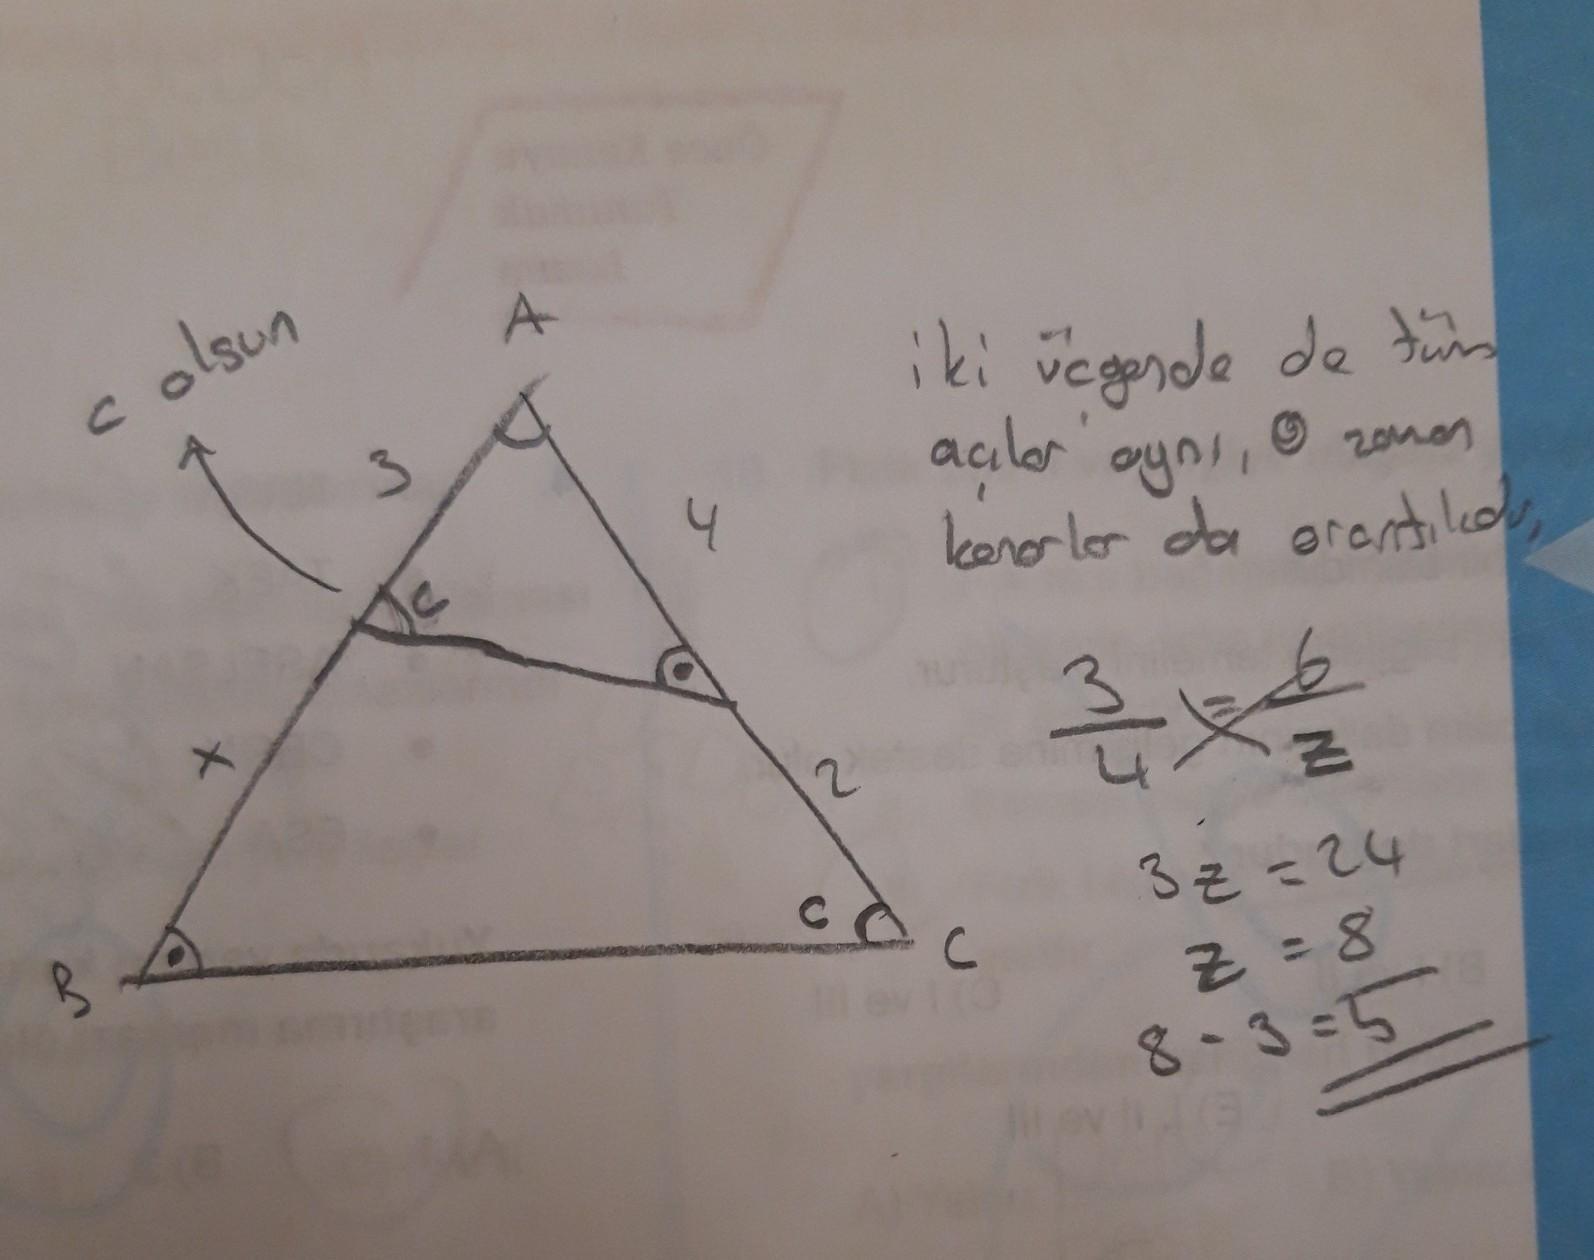 A
c olsun
3
4
c
x
2
c
B
C
iki üçgende de tüm
açılar aynı, o zaman
kenarlar da orantılıdır,
3/4 = 6/z
3z = 24
z = 8
8 - 3 = 5